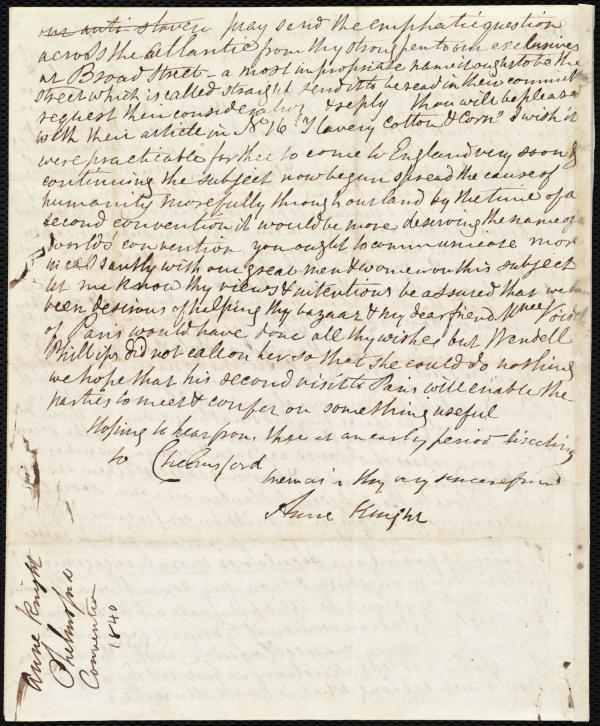 our anti-slavery pray send the emphatic question
across the Atlantic from thy strong pen to our exclusives
at Broad Street - a most improper name it ought to be the
street which is called straight send it to be read in their committ
request their consideration & reply thou will be pleased
with their article in No 16 "Slavery Cotton & Corn" I wish it
were practicable for thee to come to England very soon &
continuing the subject now begun spread the cause of
humanity more fully through our land by the time of a
second convention it would be more deserving the name of
World's convention you ought to communicate more
incessantly with our great men & women on this subject
let me know thy views & intentions be assured that we
been desirous of helping thy bazaar & my dear friend
of Paris would have done all thy wishes but Wendell
Phillips did not call on her so that she could do nothing
we hope that his second visit to Paris will enable the
parties to meet & confer on something useful
Hoping to hear from thee at an early period directing
to Chelmsford
I remain thy very sincere friend
Anne Knight
Anne Knight
Chelmsford
Convention
1840